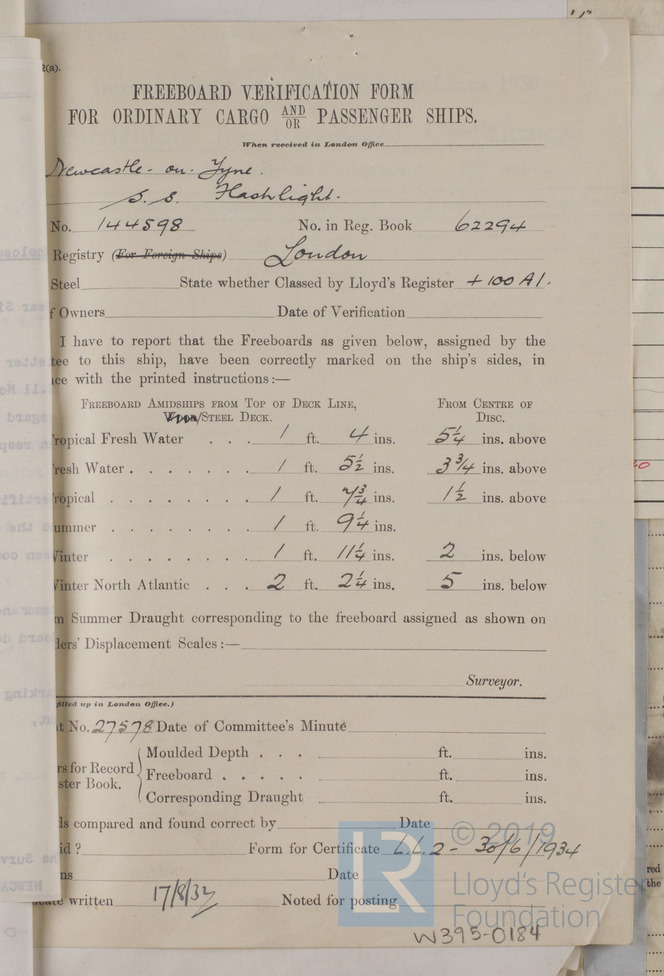 2(a).
FREEBOARD VERIFICATION FORM
FOR ORDINARY CARGO AND/OR PASSENGER SHIPS.
When received in London Office
Newcastle-on-Tyne.
S.S. Flashlight.
No. 144598 No. in Reg. Book 62294
Registry (For Foreign Ships) London
Steel State whether Classed by Lloyd's Register +100 A1.
f Owners Date of Verification
I have to report that the Freeboards as given below, assigned by the
tee to this ship, have been correctly marked on the ship's sides, in
ce with the printed instructions:—
FREEBOARD AMIDSHIPS FROM TOP OF DECK LINE, FROM CENTRE OF
Iron/STEEL DECK. DISC.
ropical Fresh Water . . . 1 ft. 4 ins. 5¼ ins. above
resh Water . . . . . . . 1 ft. 5½ ins. 3¾ ins. above
ropical . . . . . . . . 1 ft. 7¾ ins. 1½ ins. above
ummer . . . . . . . . 1 ft. 9¼ ins.
Winter . . . . . . . . 1 ft. 11¼ ins. 2 ins. below
Winter North Atlantic . . . 2 ft. 2¼ ins. 5 ins. below
m Summer Draught corresponding to the freeboard assigned as shown on
ders' Displacement Scales:—
Surveyor.
filled up in London Office.)
t No. 27578 Date of Committee's Minute
Moulded Depth . . . ft. ins.
rs for Record
ster Book.
Freeboard . . . . . ft. ins.
Corresponding Draught ft. ins.
ls compared and found correct by Date
id? Form for Certificate L.L.2 - 30/6/1934
ns Date
cate written 17/8/32 Noted for posting
© 2019
LR
Lloyd's Register
Foundation
W395-0184